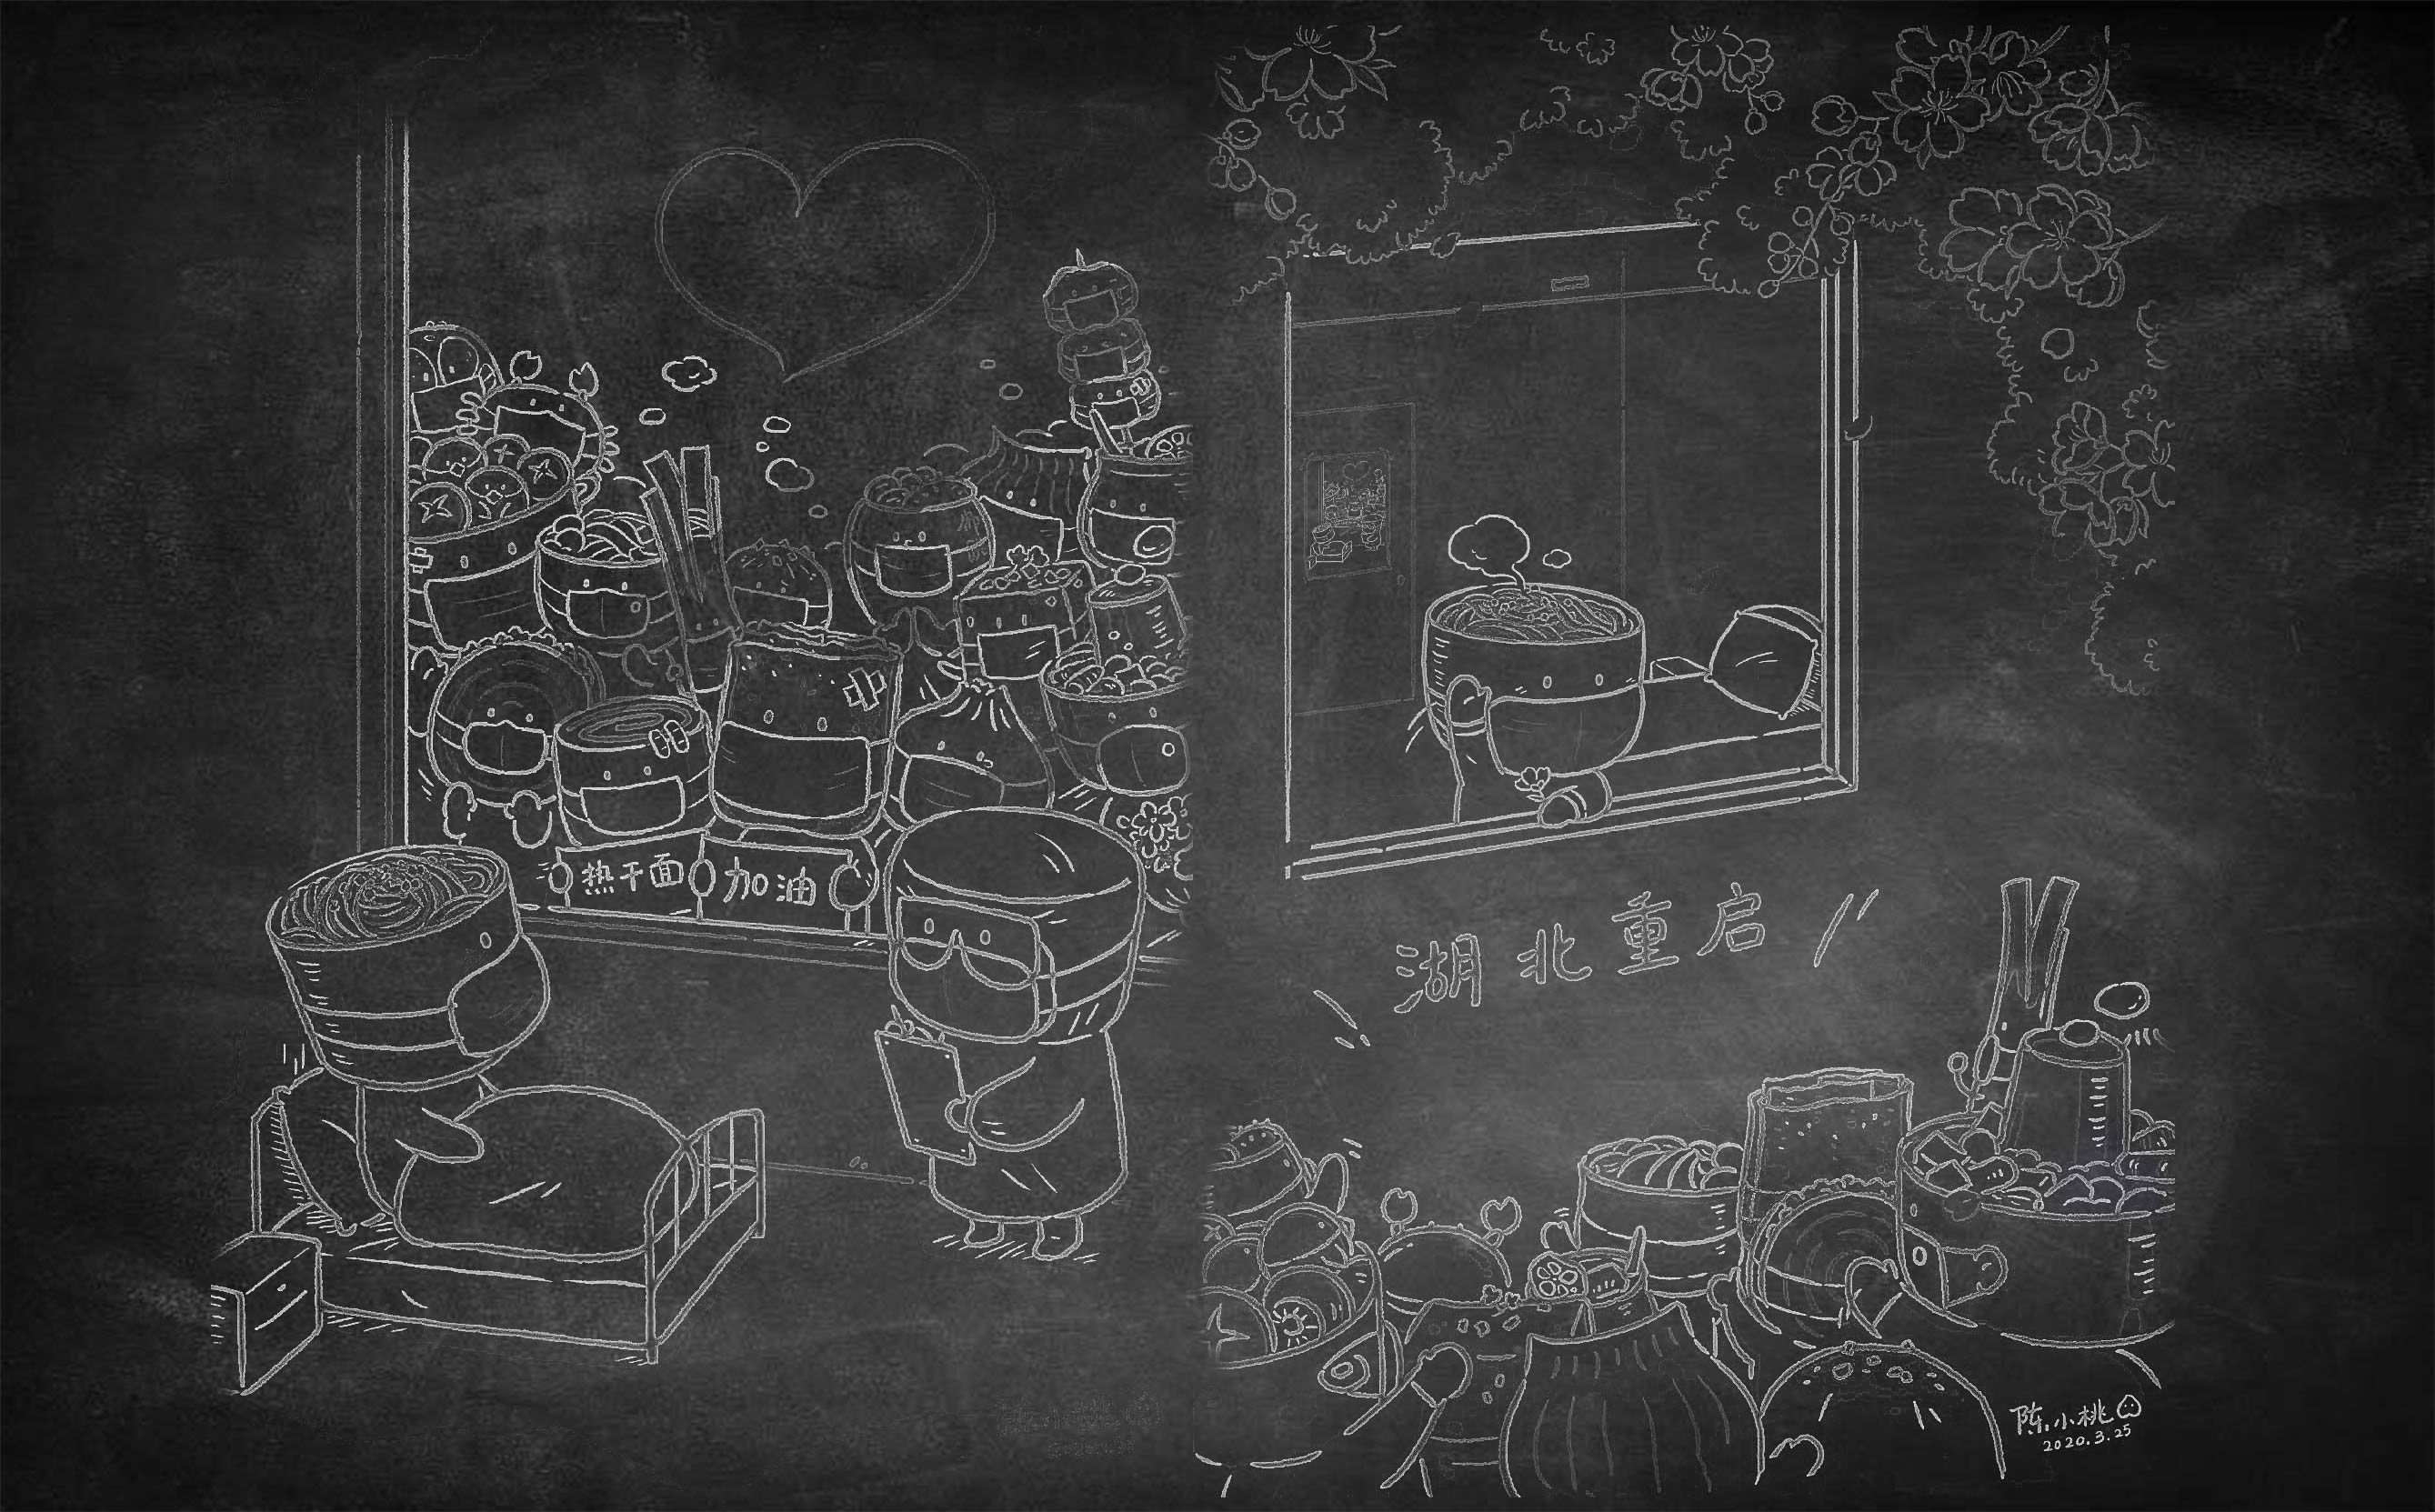 热干面
加油
湖北重启
陈小桃
2020.3.25